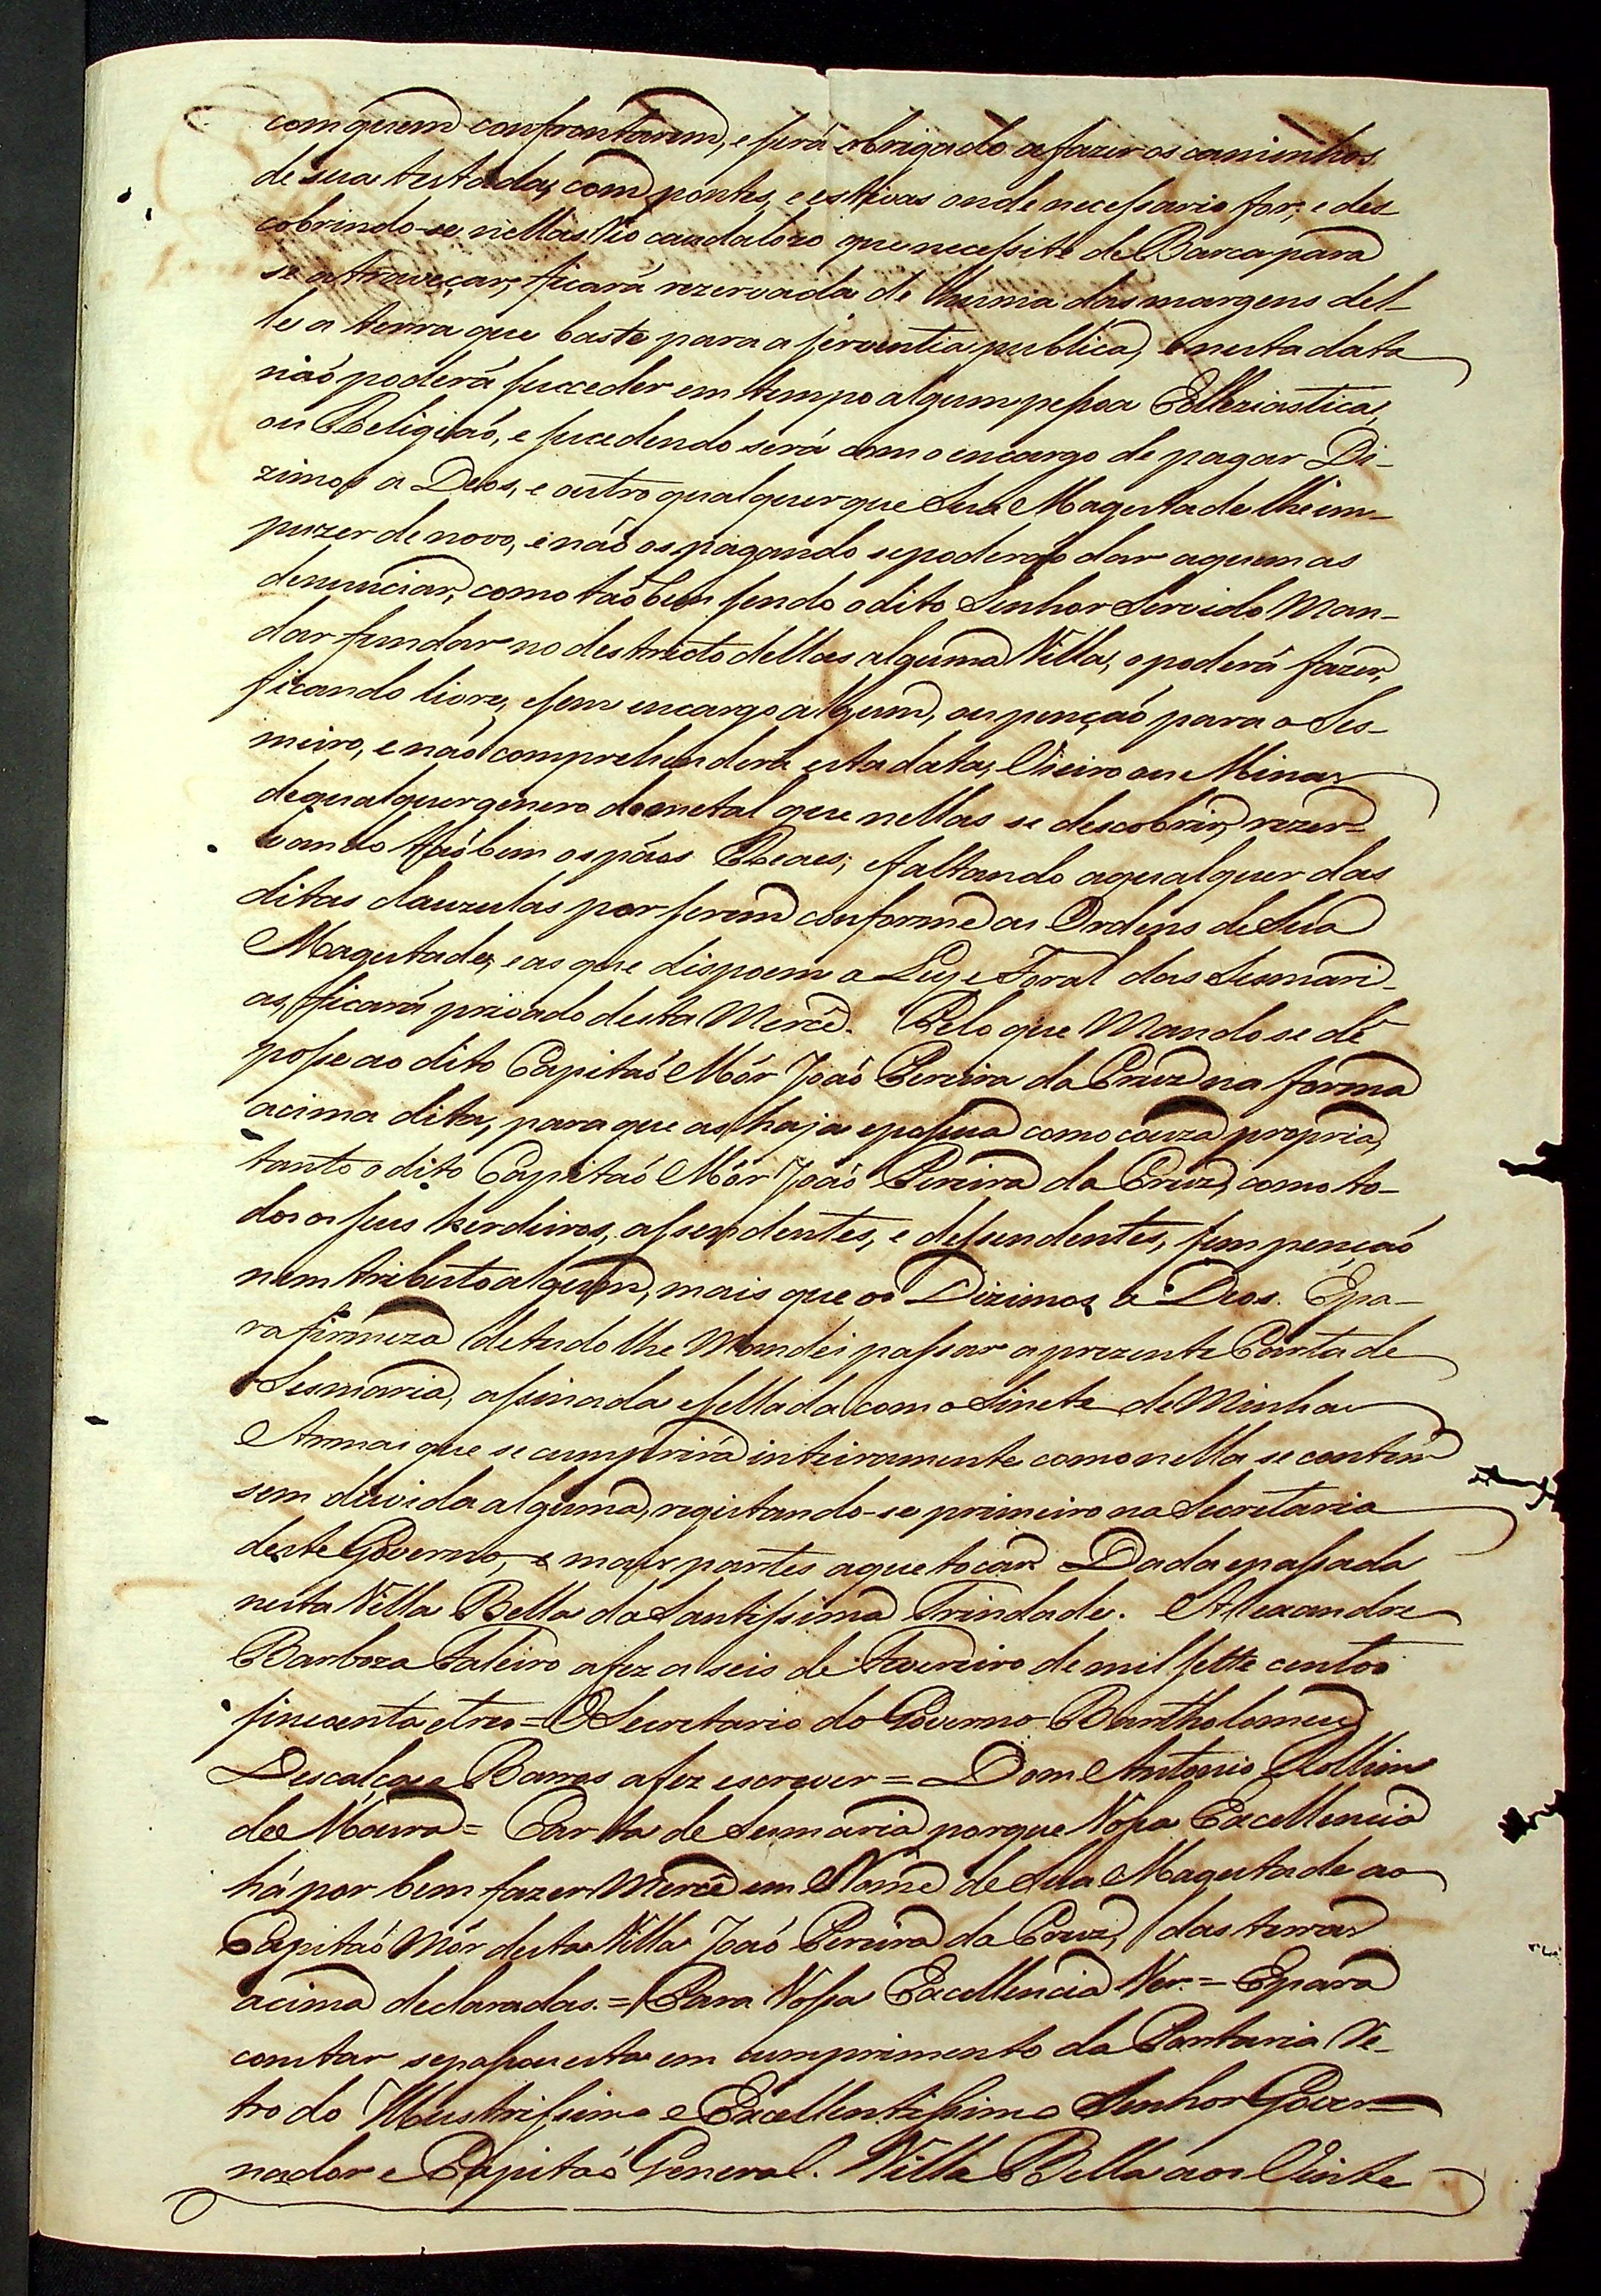 com quem confrontarem, e será obrigado a fazer os caminhos
de sua testada, com pontes, e estivas onde necessario for, e des-
cobrindo-se nellas Rio caudalozo que necessite de Barca para
se atraveçar, ficará rezervada de huma das margens del-
le a terra que baste para a serventia publica, e nesta data
naõ poderá succeder em tempo algum pessoa Eclleziastica,
ou Religiaõ, e sucedendo será com o encargo de pagar Di-
zimos a Deos, e outro qualquer que Sua Magestade lhe im-
puzer de novo, e naõ os pagando se poderaõ dar a quem as
denunciar, como taõbem sendo o dito Senhor Servido Man-
dar fundar no destricto dellas alguma Villa, o poderá fazer,
ficando livre, e sem encargo algum, ou pençaõ para o Ses-
meiro, e naõ comprehenderá esta data, Vieiro ou Minas
de qualquer genero de metal que nellas se descobrir, rezer=
vando taõbem os páos Reaes; e faltando a qualquer das
ditas clauzulas por serem conforme as Ordens de Sua
Magestade, e as que dispoem a Ley e Foral das Sesmari-
as, ficará privado desta Mercê. Pelo que Mando se dê
posse ao dito Capitaõ Mór Joaõ Pereira da Cruz na forma
acima dita, para que as haja e possua como couza propria,
tanto o dito Capitaõ Mór Joaõ Pereira da Cruz, como to-
dos os seus herdeiros, assendentes, e dessendentes, sem pençaõ
nem tributo algum, mais que os Dizimos a Deos. E pa-
ra firmeza de tudo lhe Mandei passar a prezente Carta de
Sesmaria, assinada e sellada com o Sinete de Minhas
Armas que se cumprirá inteiramente como nella se contém
sem duvida alguma, registando-se primeiro na Secretaria
deste Governo, e mais partes a que tocar. Dada e passada
nesta Villa Bella da Santissima Trindade. Alexandre
Barboza Faleiro a fez a seis de Fevereiro de mil sette centos
sincoenta e tres = O Secretario do Governo Bartholomeu
Descalça e Barros a fez escrever = Dom Antonio Rollim
de Moura = Carta de Sesmaria porque Vossa Excellencia
há por bem fazer Mercê em Nome de Sua Magestade ao
Capitaõ Mór desta Villa Joaõ Pereira da Cruz, das terras
acima declaradas. = Para Vossa Excellencia Ver. = E para
constar se passou esta em cumprimento da Portaria Re-
tro do Illustrissimo e Excellentissimo Senhor Gover=
nador e Capitaõ General. Villa Bella aos Vinte